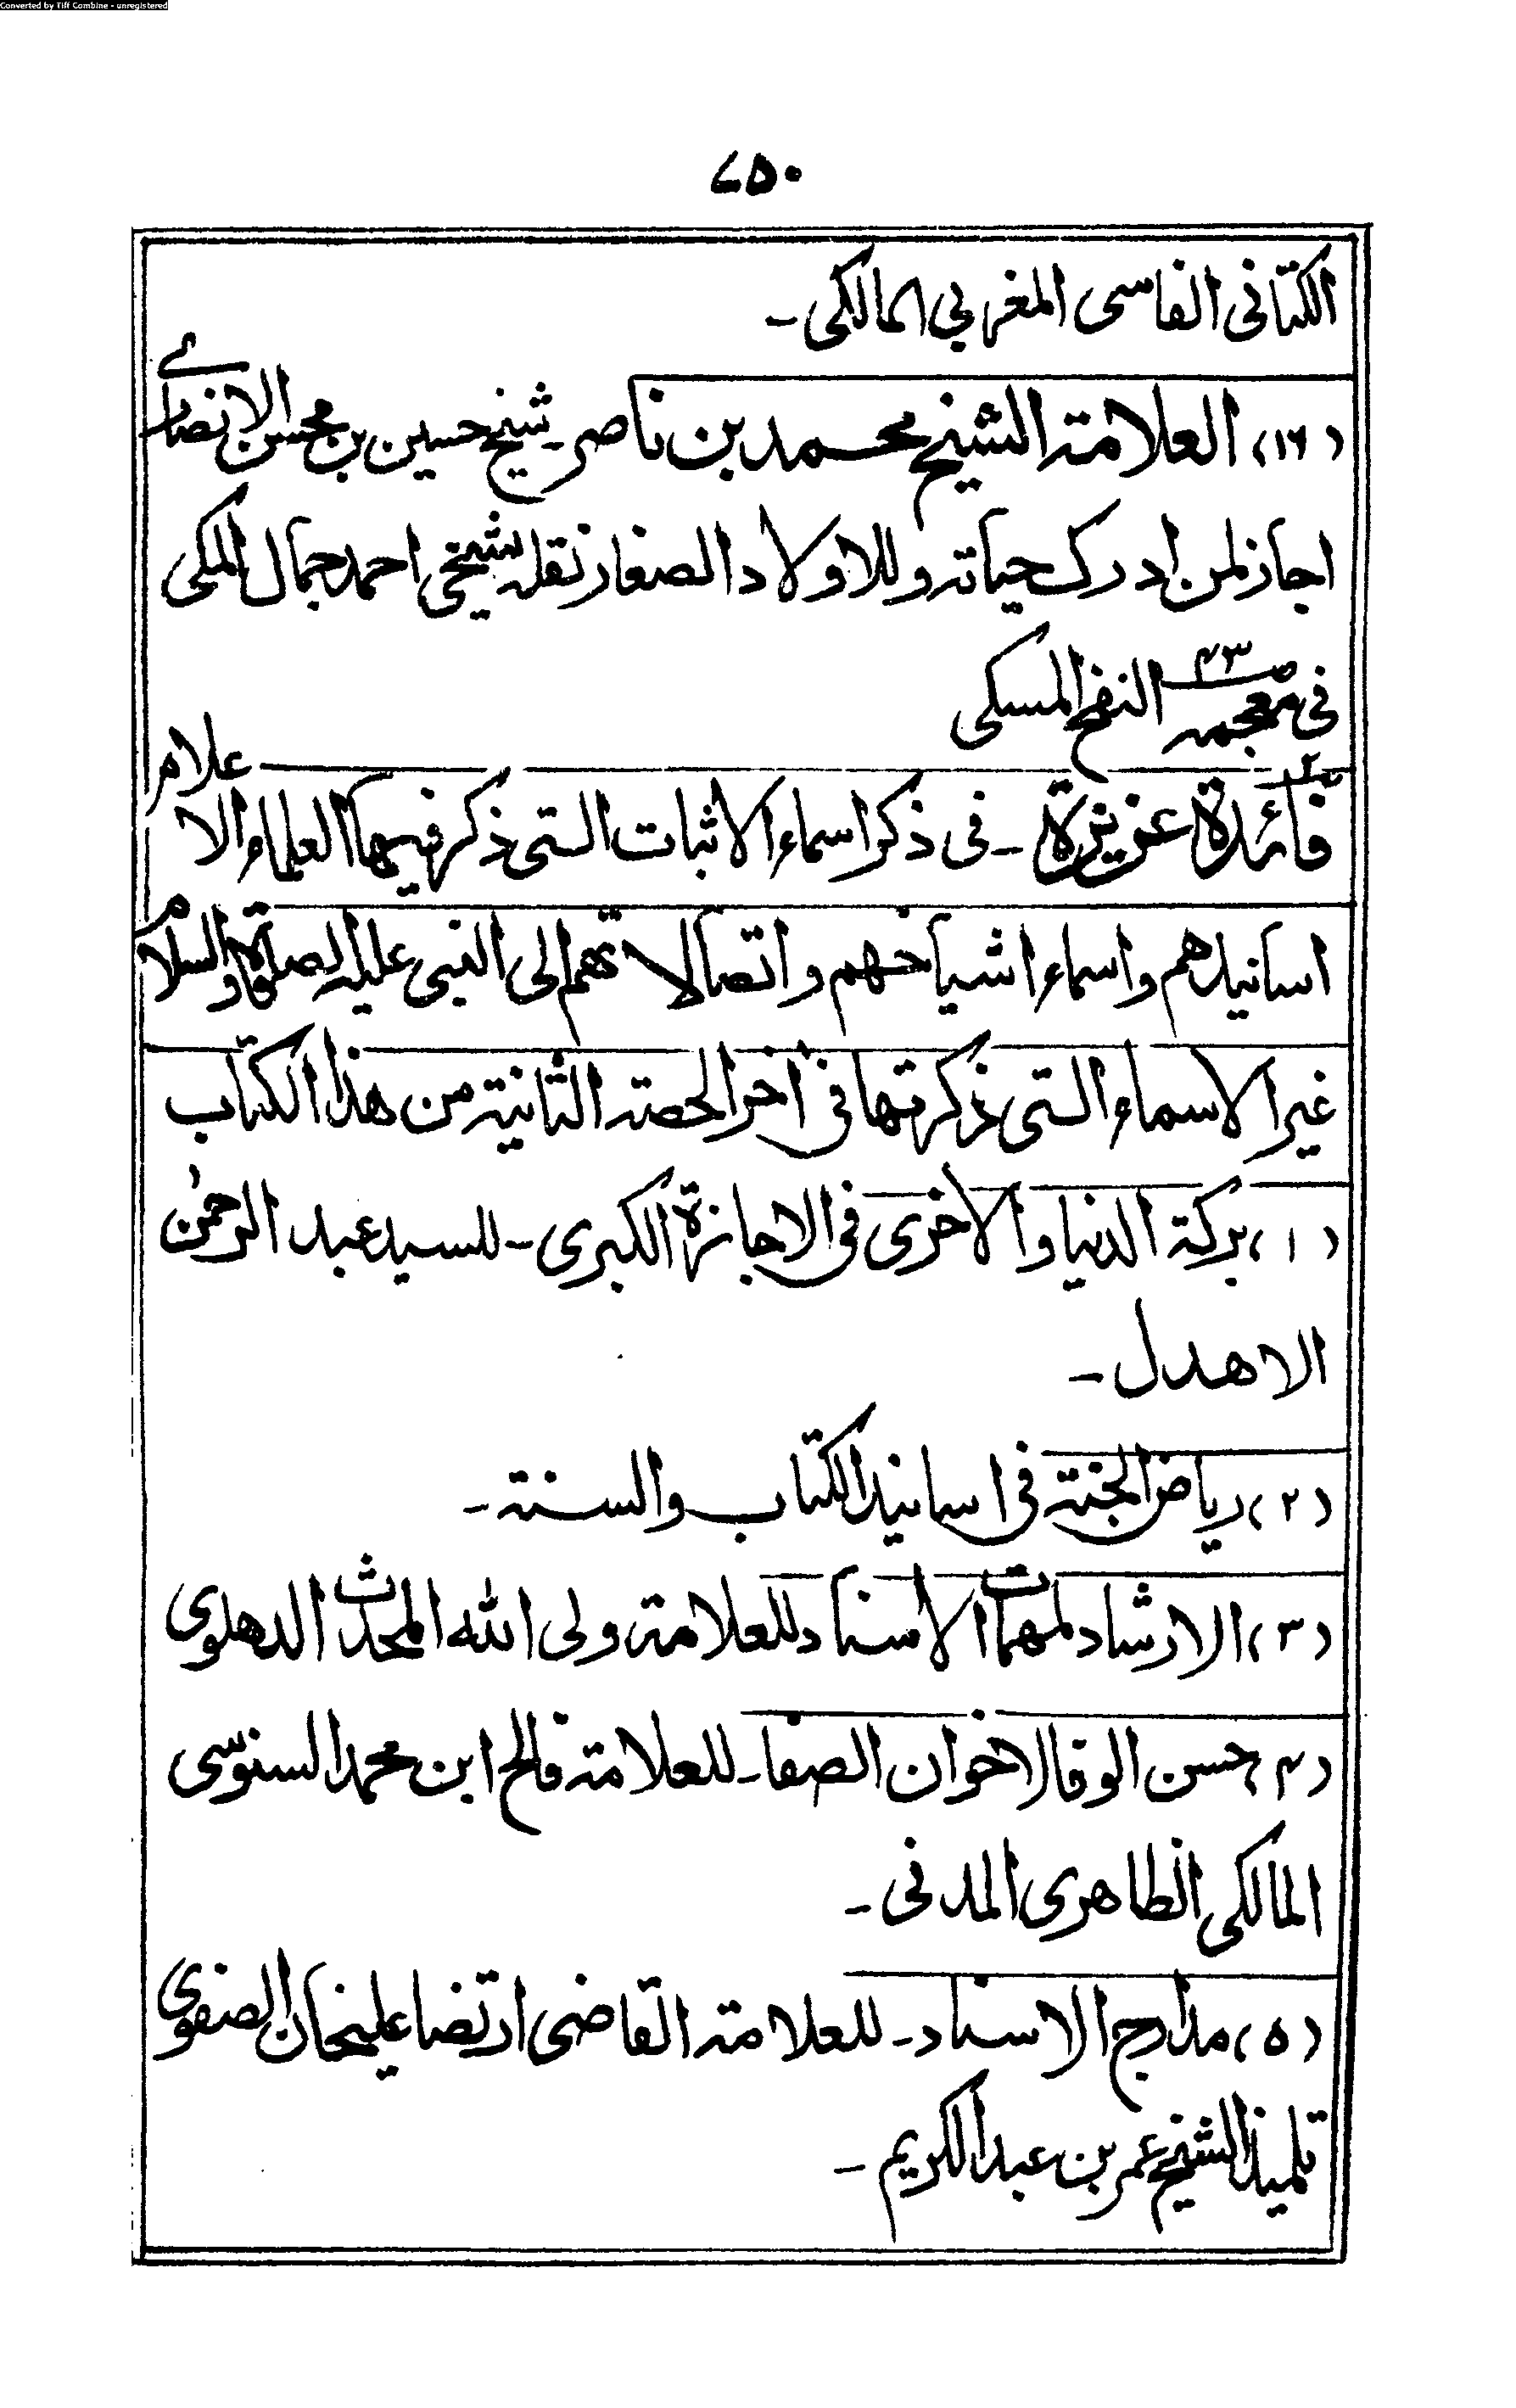 Converted by Tiff Combine - unregistered
٧٥٠
الكتانى الفاسى المغربي المالكى -
(١٦) العلامة الشيخ محمد بن ناصر - شيخ حسين بن محسن الانصارى
اجاز لمن ادرك حياته وللاولاد الصغار نقله شيخى احمد جمال المكى
فى معجمه ص ٤٣ النفح المسكى
فائدة عزيزة - فى ذكر اسماء الاثبات التى ذكر فيها العلماء الاعلام
اسانيدهم واسماء اشياخهم واتصالاتهم الى النبى عليه الصلوة والسلام
غير الاسماء التى ذكرتها فى اٰخر الحصة الثانية من هذا الكتاب
(١) بركة الدنيا والاخرى فى الاجازة الكبرى - للسيد عبد الرحمٰن
الاهدل -
(٢) رياض الجنة فى اسانيد الكتاب والسنة -
(٣) الارشاد لمهمات الاسناد للعلامة ولى الله المحدث الدهلوى
(٤) حسن الوفا لاخوان الصفا - للعلامة فالح ابن محمد السنوسى
المالكى الظاهرى المدنى -
(٥) مدارج الاسناد - للعلامة القاضى ارتضا عليخان الصفوى
تلميذ الشيخ عمر بن عبد الكريم -